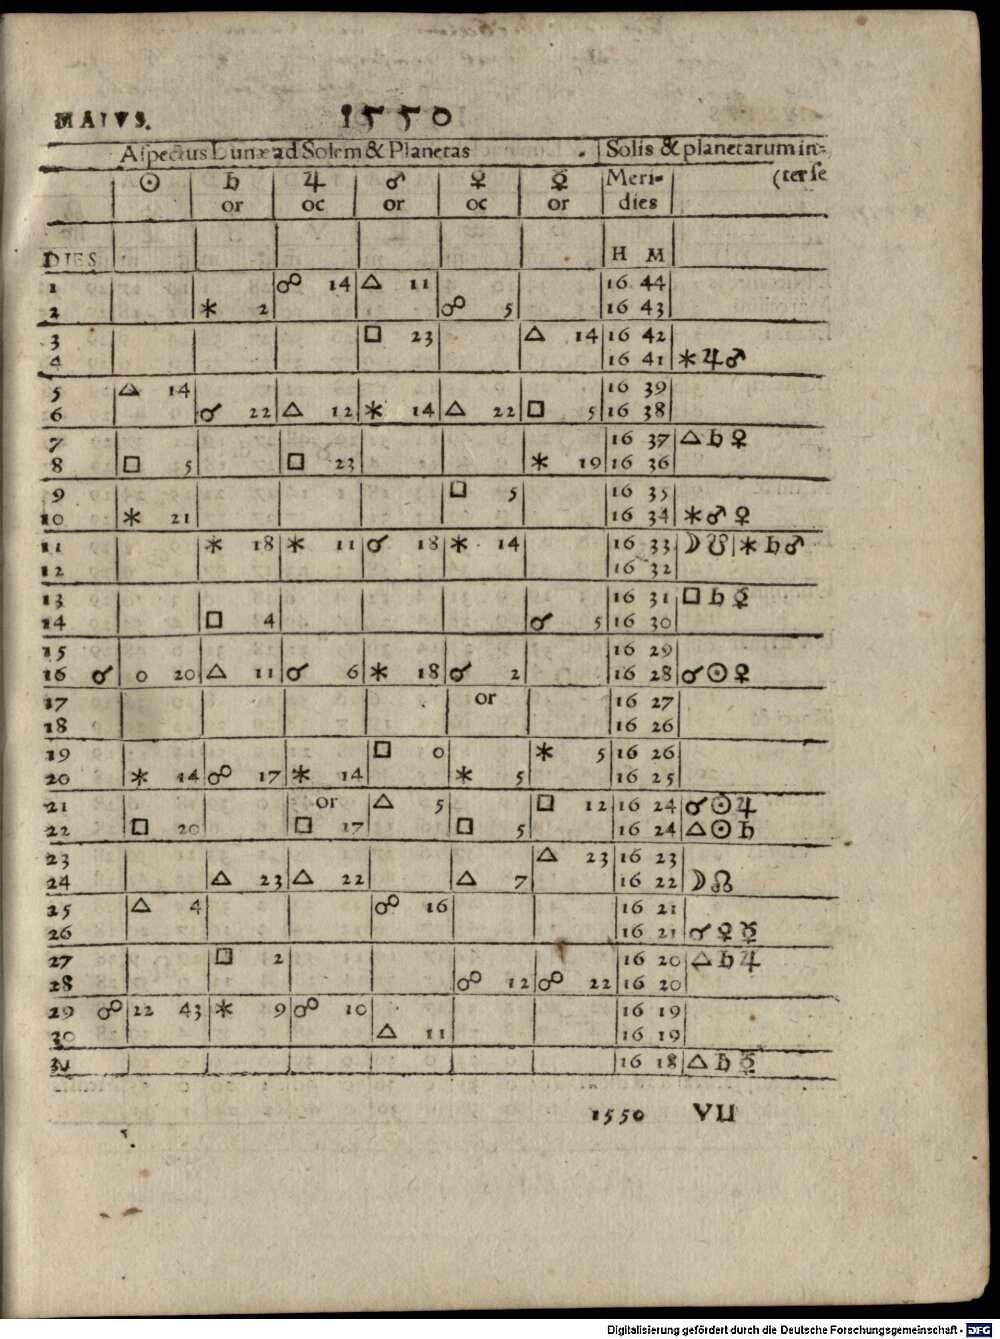 MAIVS. 1550
Aspectus Lunæ ad Solem & Planetas . Solis & planetarum in-
☉ ♄ ♃ ♂ ♀ ☿ Meri- (ter se
or oc or oc or dies
DIES H M
1 ☍ 14 △ 11 16 44
2 ⚹ 2 ☍ 5 16 43
3 □ 23 △ 14 16 42
4 16 41 ⚹ ♃ ♂
5 △ 14 16 39
6 ☌ 22 △ 12 ⚹ 14 △ 22 □ 5 16 38
7 16 37 △ ♄ ♀
8 □ 5 □ 23 ⚹ 19 16 36
9 □ 5 16 35
10 ⚹ 21 16 34 ⚹ ♂ ♀
11 ⚹ 18 ⚹ 11 ☌ 18 ⚹ 14 16 33 ☽ ☋ ⚹ ♄ ♂
12 16 32
13 16 31 □ ♄ ☿
14 □ 4 ☌ 5 16 30
15 16 29
16 ☌ 0 20 △ 11 ☌ 6 ⚹ 18 ☌ 2 16 28 ☌ ☉ ♀
17 or 16 27
18 16 26
19 □ 0 ⚹ 5 16 26
20 ⚹ 14 ☍ 17 ⚹ 14 ⚹ 5 16 25
21 or △ 5 □ 12 16 24 ☌ ☉ ♃
22 □ 20 □ 17 □ 5 16 24 △ ☉ ♄
23 △ 23 16 23
24 △ 23 △ 22 △ 7 16 22 ☽ ☊
25 △ 4 ☍ 16 16 21
26 16 21 ☌ ♀ ☿
27 □ 2 16 20 △ ♄ ♃
28 ☍ 12 ☍ 22 16 20
29 ☍ 22 43 ⚹ 9 ☍ 10 16 19
30 △ 11 16 19
31 16 18 △ ♄ ☿
1550 VII
Digitalisierung gefördert durch die Deutsche Forschungsgemeinschaft - DFG